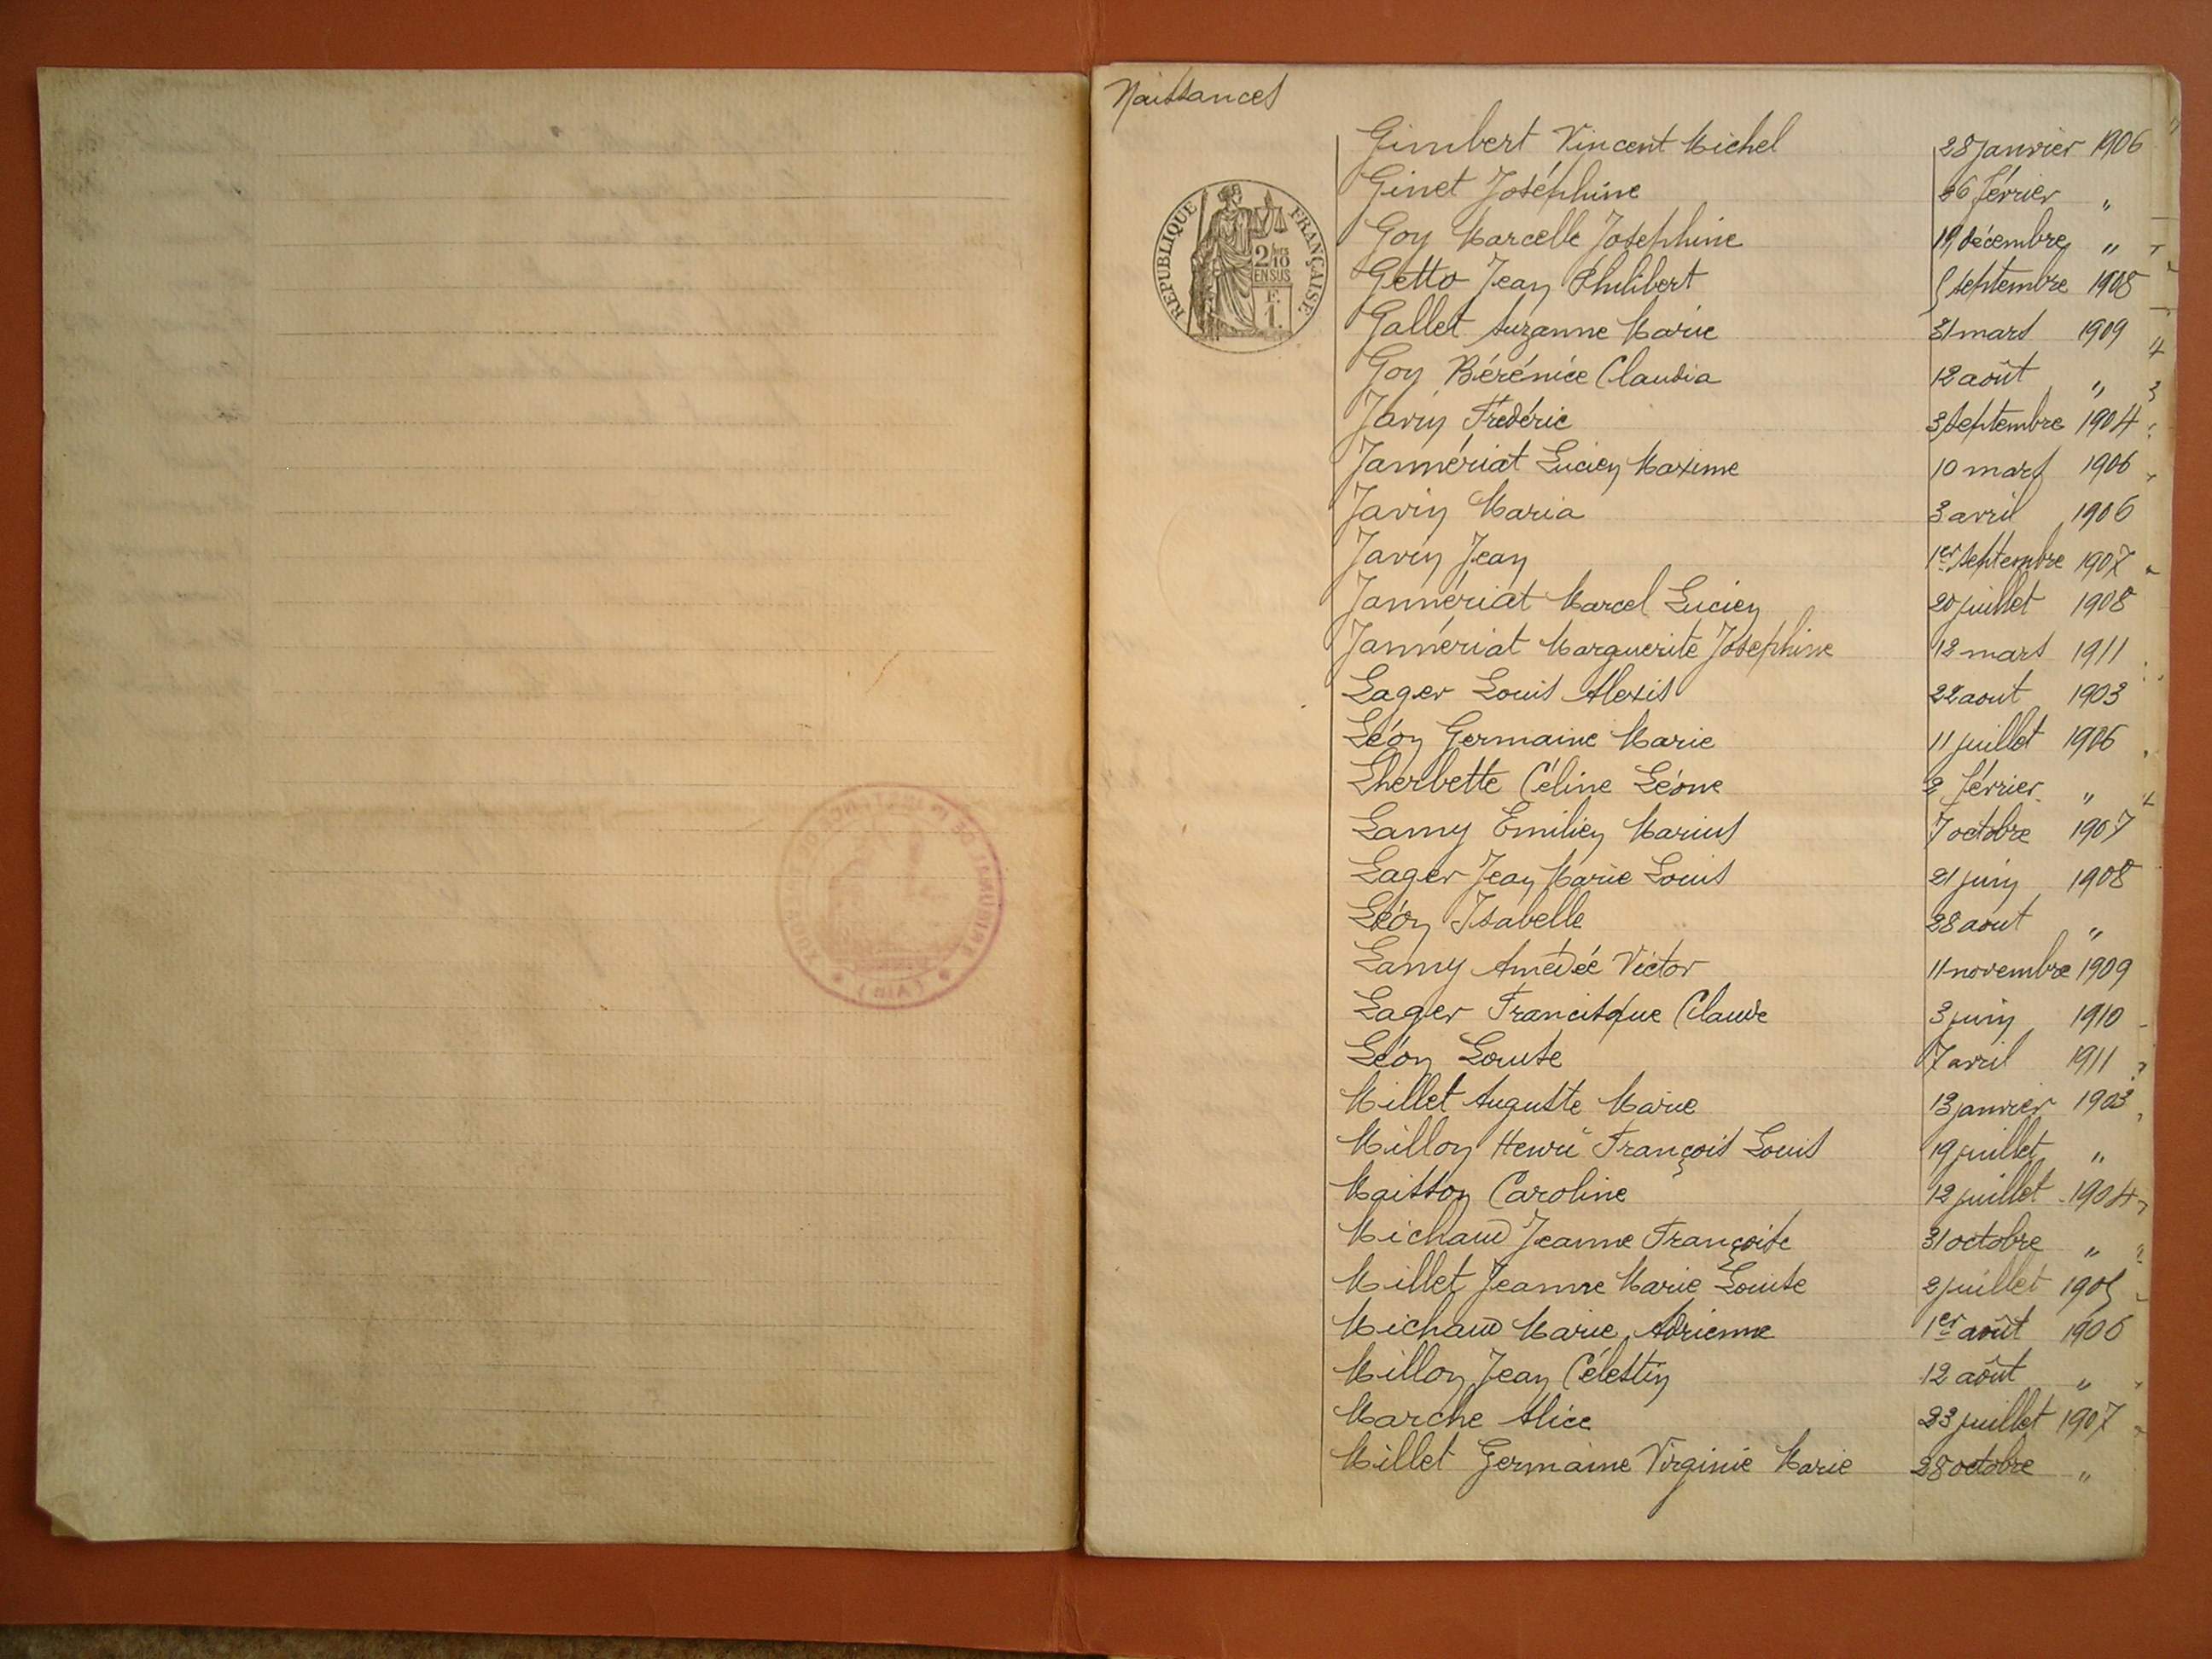 Naissances
RÉPUBLIQUE FRANÇAISE
2/10
EN SUS
F.
1.
Gimbert Vincent Michel 28 janvier 1906
Ginet Joséphine 26 février "
Goy Marcelle Joséphine 19 décembre "
Getto Jean Philibert 5 septembre 1908
Gallet Suzanne Marie 31 mars 1909
Goy Bérénice Claudia 12 août "
Javin Frédéric 3 septembre 1904
Jannériat Lucien Maxime 10 mars 1906
Javin Maria 3 avril 1906
Javin Jean 1er septembre 1907
Jannériat Marcel Lucien 20 juillet 1908
Jannériat Marguerite Joséphine 12 mars 1911
Lager Louis Alexis 22 aout 1903
Léon Germaine Marie 11 juillet 1906
Lherbette Céline Léone 2 février "
Lamy Emilien Marius 7 octobre 1907
Lager Jean Marie Louis 21 juin 1908
Léon Isabelle 28 aout "
Lamy Amédée Victor 11 novembre 1909
Lager Francisque Claude 3 juin 1910
Léon Louise 7 avril 1911
Millet Auguste Marie 13 janvier 1903
Millon Henri François Louis 19 juillet "
Maisson Caroline 12 juillet 1904
Michaud Jeanne Françoise 31 octobre "
Millet Jeanne Marie Louise 2 juillet 1905
Michaud Marie Adrienne 1er août 1906
Millon Jean Célestin 12 août "
Marche Alice 23 juillet 1907
Millet Germaine Virginie Marie 28 octobre "
(AIN)